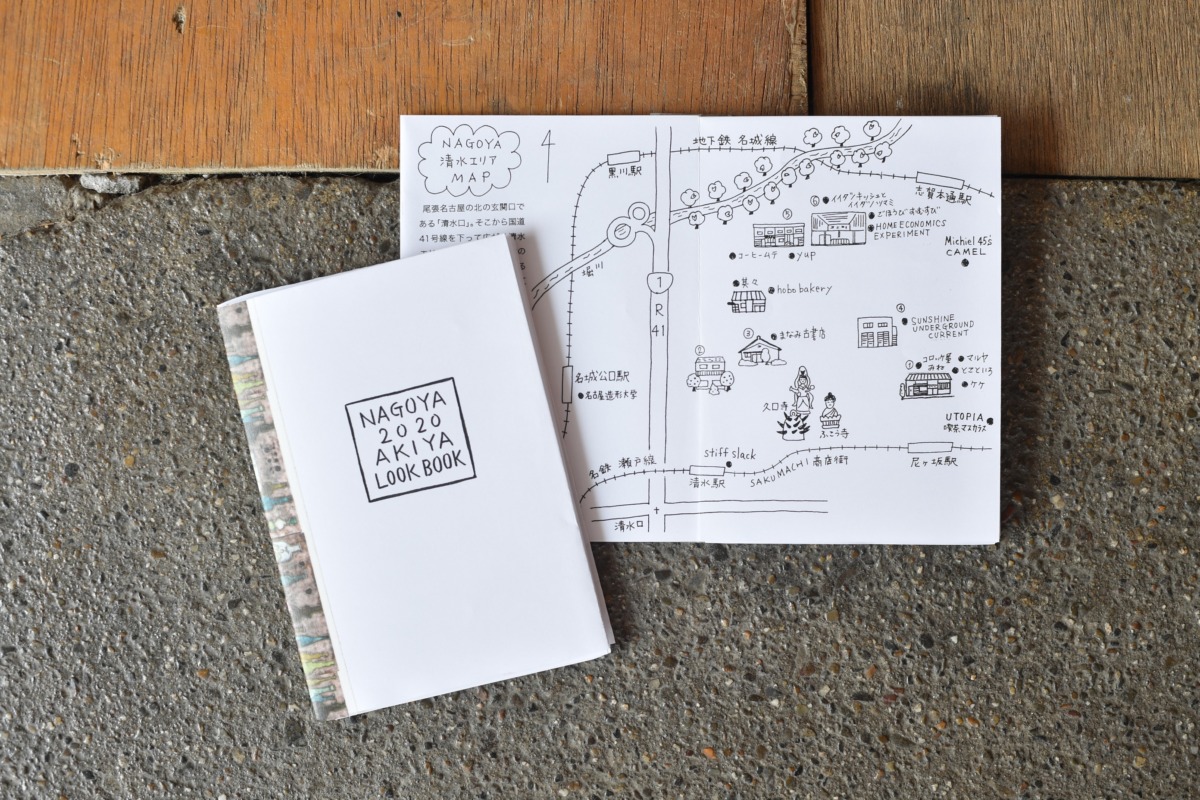 NAGOYA
清水エリア
MAP
尾張名古屋の北の玄関口で
ある「清水口」。そこから国道
41号線を下って
地下鉄 名城線
黒川駅
志賀本通駅
⑥
イイダキッチンと
イイダノツマミ
ごほうびおむすび
HOME ECONOMICS
EXPERIMENT
⑤
コーヒームテ
yup
Michiel 45's
CAMEL
堀川
1
R
41
甚々
hobo bakery
④
SUNSHINE
UNDERGROUND
CURRENT
③
まなみ古書店
②
①
コロッケ屋
みね
マルヤ
とさといろ
ケケ
名城公口駅
名古屋造形大学
久口寺
ふこう寺
UTOPIA
喫茶マスカラス
stiff slack
名鉄 瀬戸線
清水駅
SAKUMACHI 商店街
尼ヶ坂駅
清水口
NAGOYA
2020
AKIYA
LOOK BOOK